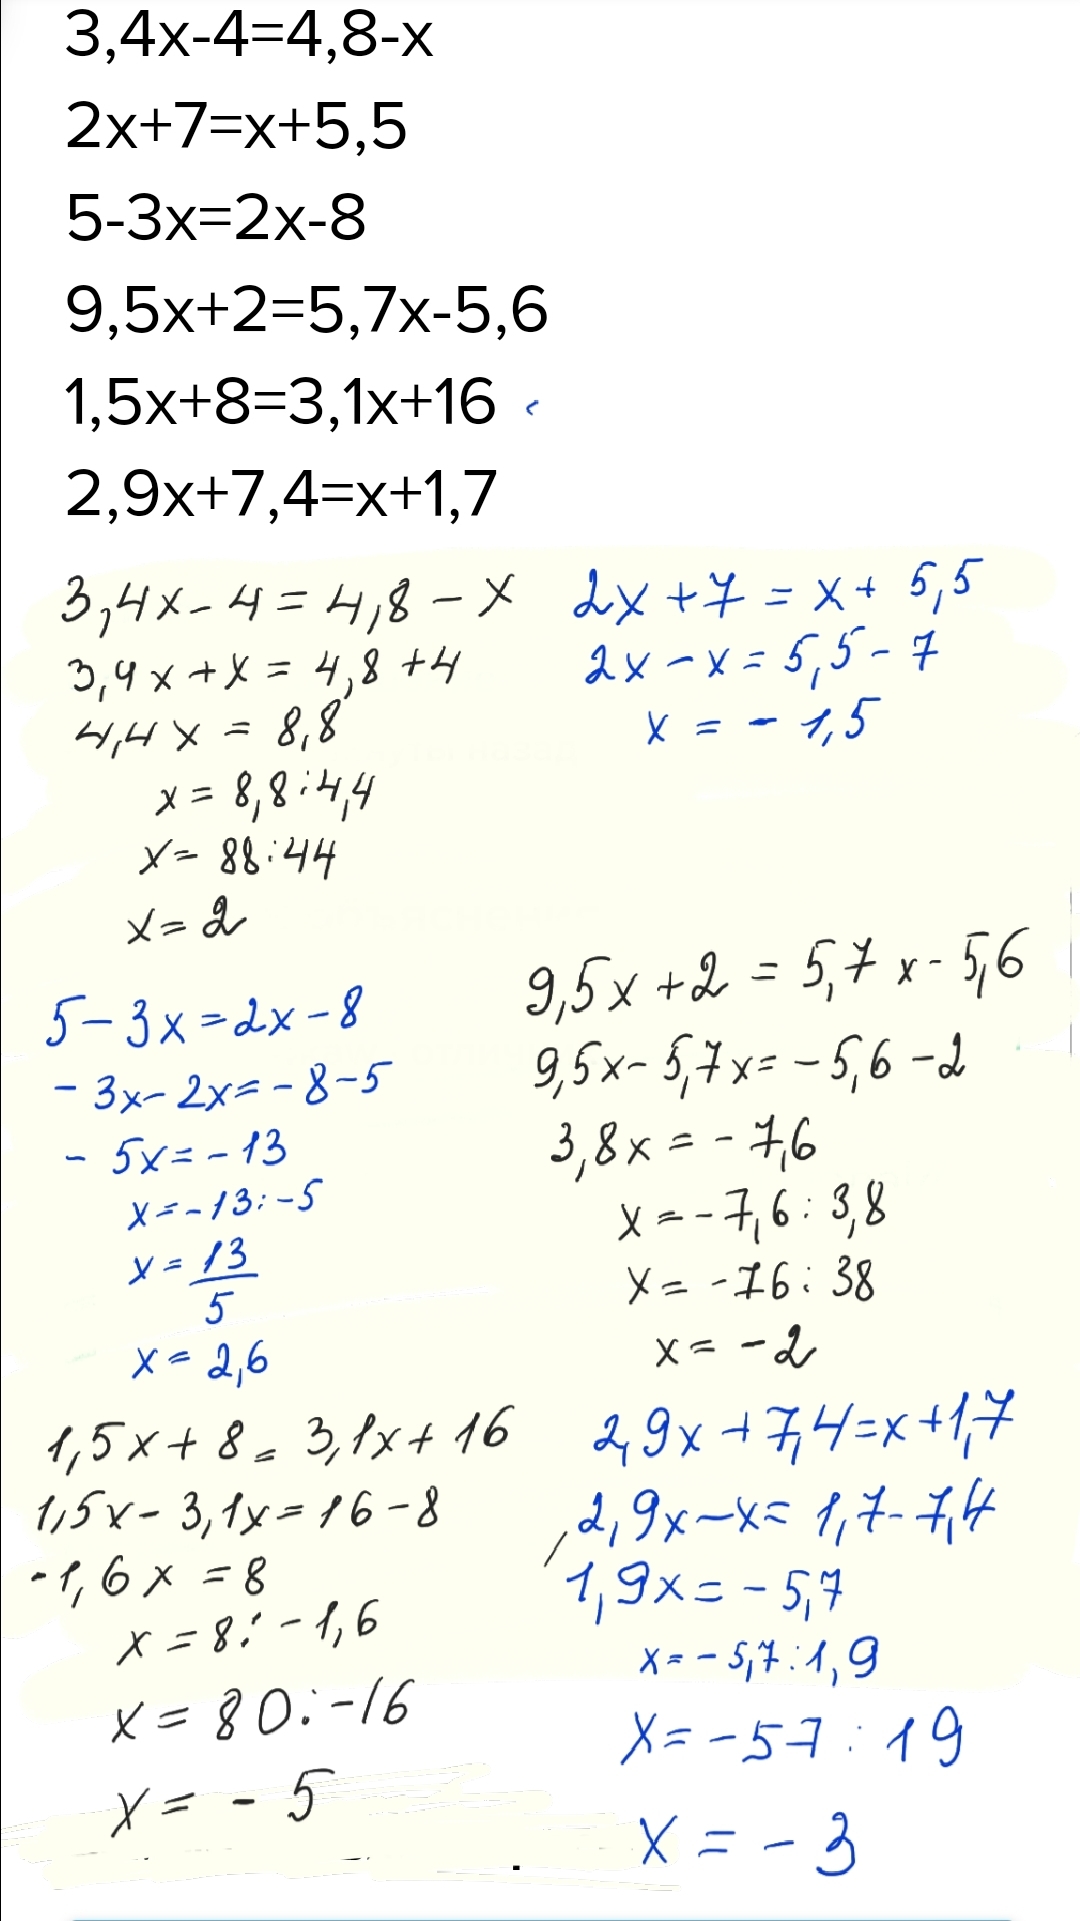 3,4x-4=4,8-x
2x+7=x+5,5
5-3x=2x-8
9,5x+2=5,7x-5,6
1,5x+8=3,1x+16
2,9x+7,4=x+1,7
3,4x-4=4,8-x
3,4x+x=4,8+4
4,4x=8,8
x=8,8:4,4
x=88:44
x=2
2x+7=x+5,5
2x-x=5,5-7
x=-1,5
5-3x=2x-8
-3x-2x=-8-5
-5x=-13
x=-13:-5
x=13/5
x=2,6
9,5x+2=5,7x-5,6
9,5x-5,7x=-5,6-2
3,8x=-7,6
x=-7,6:3,8
x=-76:38
x=-2
1,5x+8=3,1x+16
1,5x-3,1x=16-8
-1,6x=8
x=8:-1,6
x=80:-16
x=-5
2,9x+7,4=x+1,7
2,9x-x=1,7-7,4
1,9x=-5,7
x=-5,7:1,9
x=-57:19
x=-3